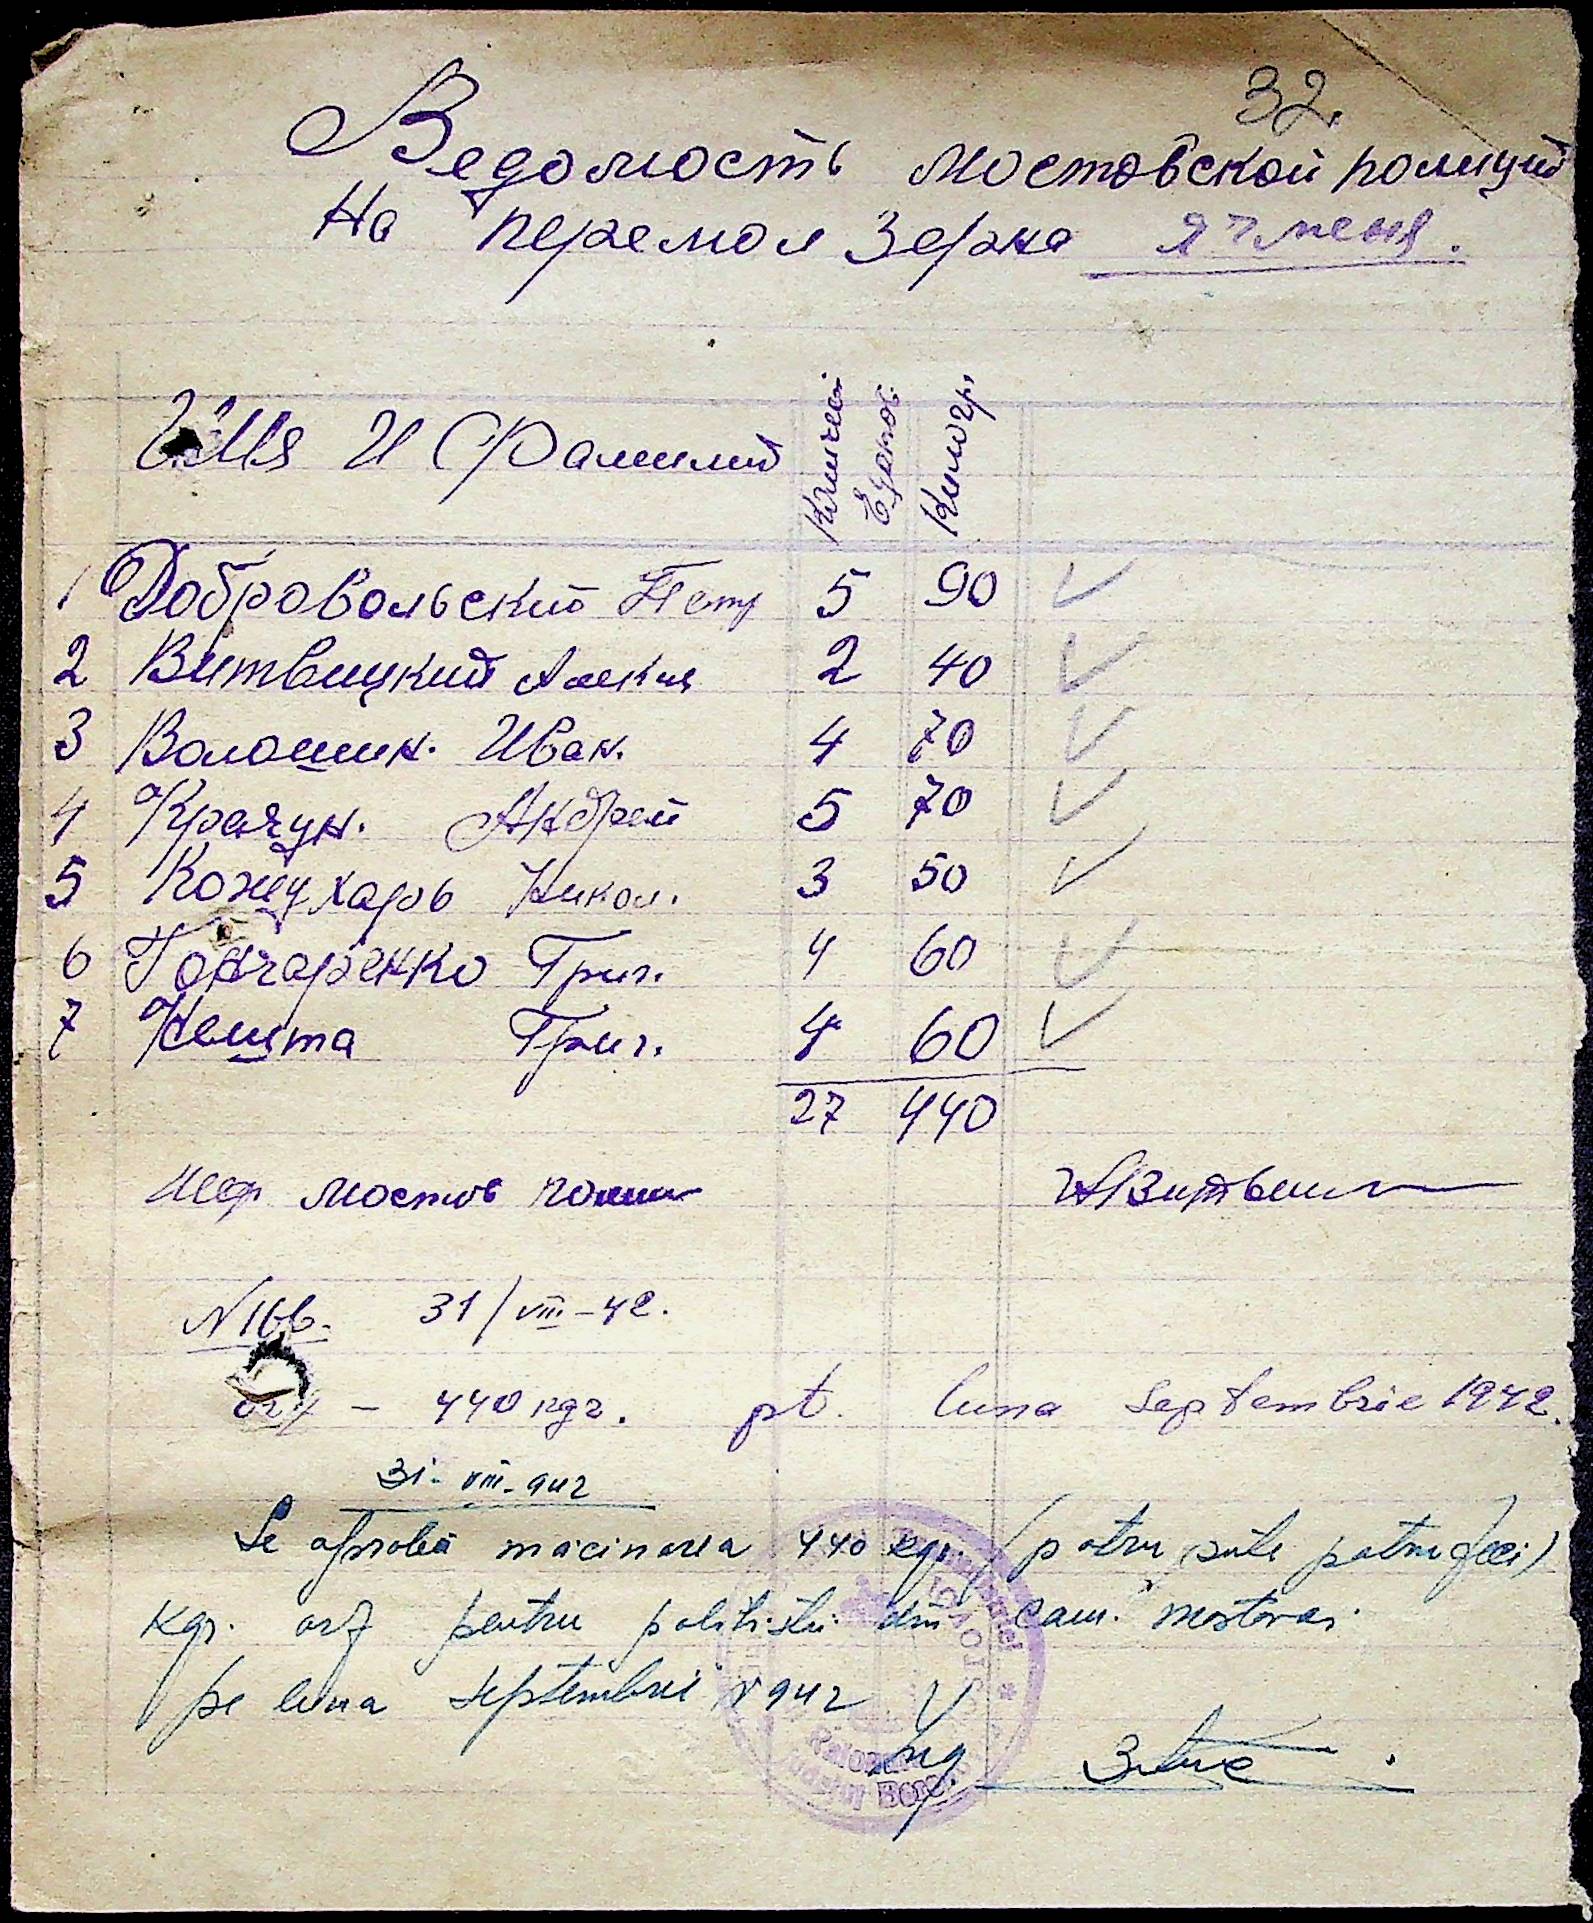 32.
Ведомость мостовской полиций
На перемол Зерна ячменя.
Имя И Фамилий
Едоков
Килогр.
1 Добровольский Петр 5 90
2 Витвицкий Алекс 2 40
3 Волошин. Иван. 4 70
4 Крачун. Андрей 5 70
5 Кожухарь Никол. 3 50
6 Гончаренко Григ. 4 60
7 Кешта Григ. 4 60
27 440
Шеф мостов полиц
N 166. 31/VIII-42.
orz - 440 kgr. pt. luna Septembrie 1942.
31-VIII-942
Se aprobă măcinarea 440 kgr. (patru sute patruzeci)
kgr. orz pentru politistii din com. mostovoi
pe luna septembrie 1942
Ing
județul Bere